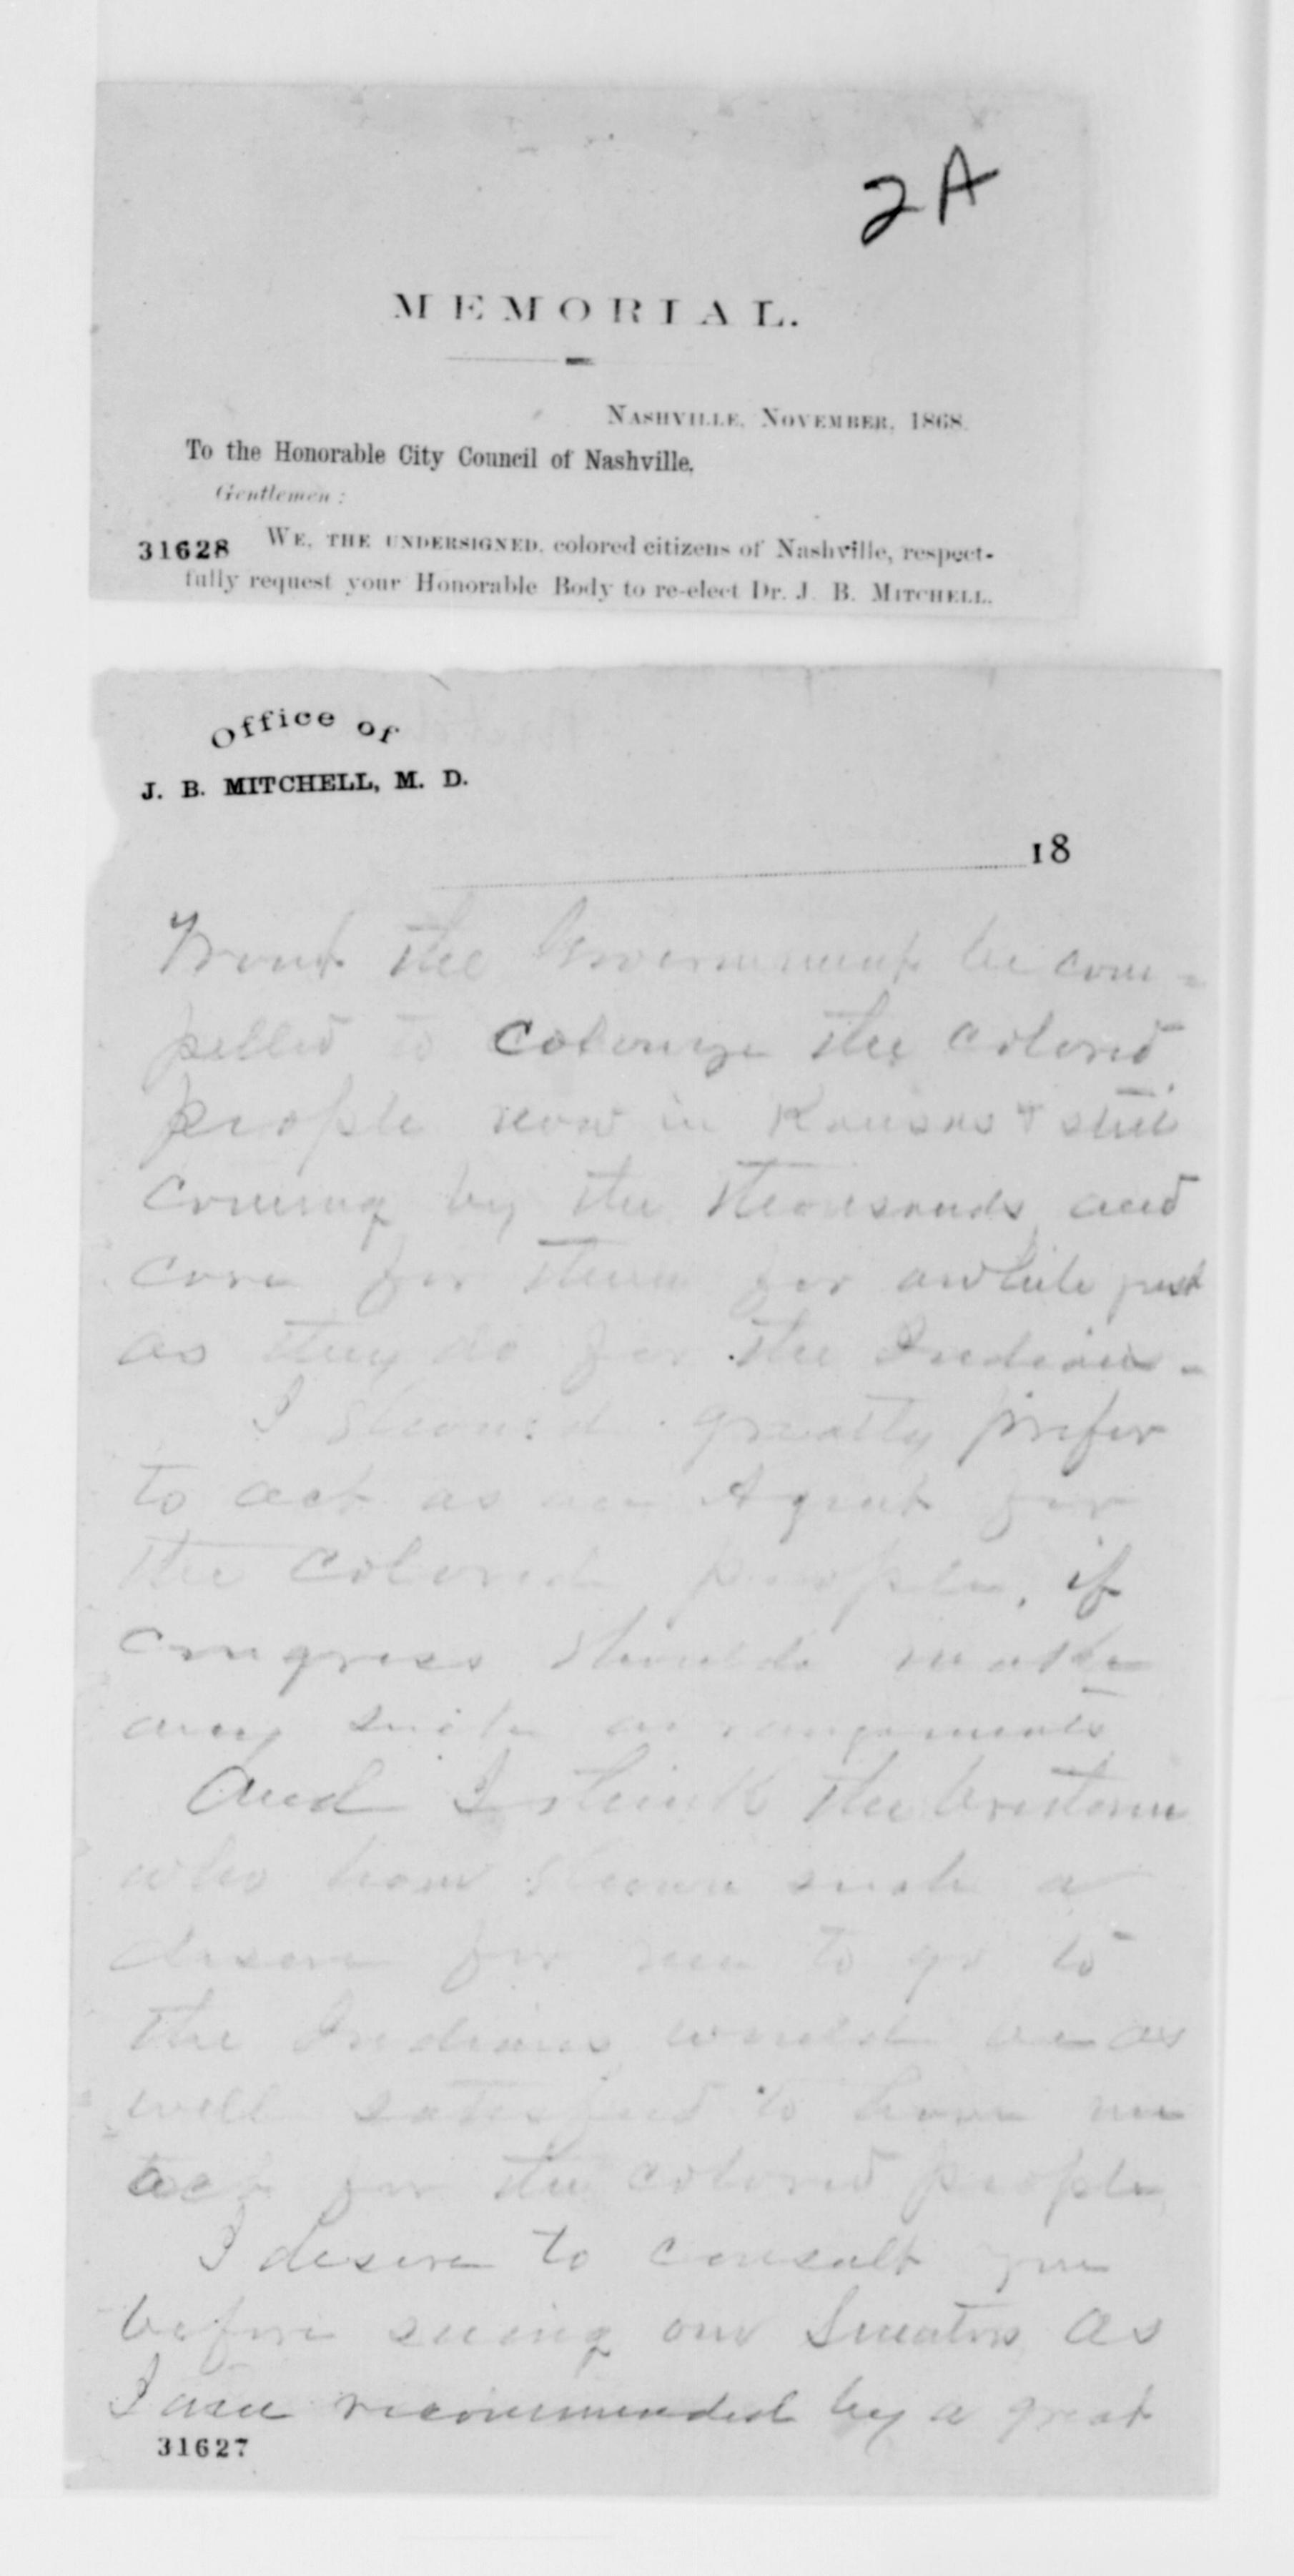 2A
MEMORIAL.
NASHVILLE, NOVEMBER, 1868.
To the Honorable City Council of Nashville.
Gentlemen:
31628 WE, THE UNDERSIGNED, colored citizens of Nashville, respect-
fully request your Honorable Body to re-elect Dr. J. B. MITCHELL.
Office of
J. B. MITCHELL, M. D.
18
Wont the Government be com-
pelled to Colonize the colored
people now in Kansas & still
coming by the thousands and
care for them for awhile just
as they do for the Indians -
I should greatly prefer
to act as an Agent for
the colored people, if
Congress should make
any such arrangements
And I think the
who have shown such a
desire for me to go to
the Indians would be as
well satisfied to have me
act for the colored people
I desire to consult you
before seeing our Senators as
I am recommended by a great
31627